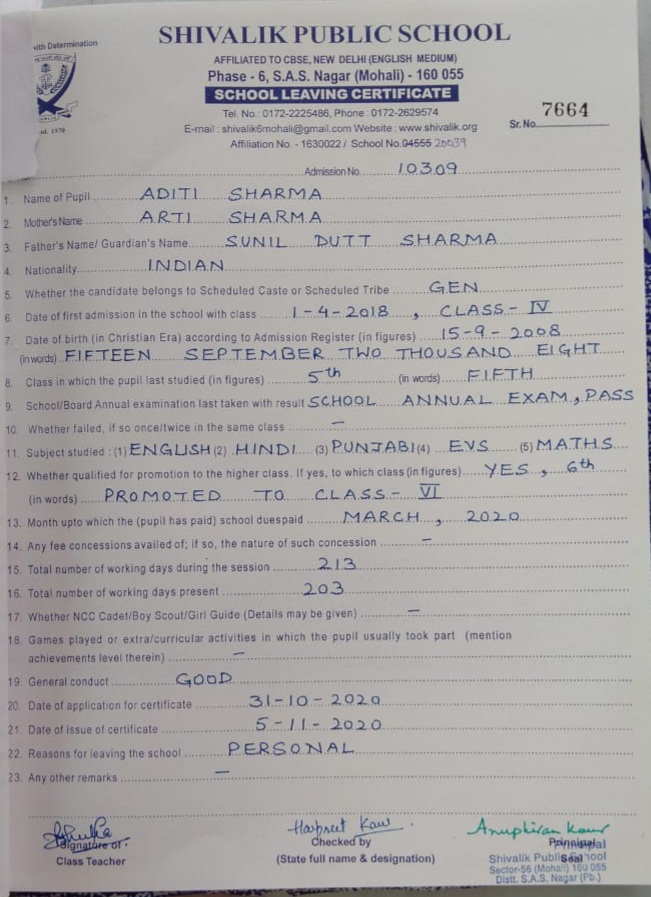 with Determination
SHIVALIK PUBLIC SCHOOL
AFFILIATED TO CBSE, NEW DELHI (ENGLISH MEDIUM)
Phase - 6, S.A.S. Nagar (Mohali) - 160 055
SCHOOL LEAVING CERTIFICATE
Tel. No.: 0172-2225486, Phone : 0172-2629574
E-mail : shivalik6mohali@gmail.com Website : www.shivalik.org
Sr. No. 7664
Affiliation No. - 1630022 / School No.04555 20039
Admission No. 10309
1. Name of Pupil ADITI SHARMA
2. Mother's Name ARTI SHARMA
3. Father's Name/ Guardian's Name SUNIL DUTT SHARMA
4. Nationality INDIAN
5. Whether the candidate belongs to Scheduled Caste or Scheduled Tribe GEN
6. Date of first admission in the school with class 1-4-2018, CLASS-IV
7. Date of birth (in Christian Era) according to Admission Register (in figures) 15-9-2008
(in words) FIFTEEN SEPTEMBER TWO THOUSAND EIGHT
8. Class in which the pupil last studied (in figures) 5th (in words) FIFTH
9. School/Board Annual examination last taken with result SCHOOL ANNUAL EXAM, PASS
10. Whether failed, if so once/twice in the same class —
11. Subject studied : (1) ENGLISH (2) HINDI (3) PUNJABI (4) EVS (5) MATHS
12. Whether qualified for promotion to the higher class. If yes, to which class (in figures) YES, 6th
(in words) PROMOTED TO CLASS- VI
13. Month upto which the (pupil has paid) school duespaid MARCH, 2020
14. Any fee concessions availed of; if so, the nature of such concession —
15. Total number of working days during the session 213
16. Total number of working days present 203
17. Whether NCC Cadet/Boy Scout/Girl Guide (Details may be given) —
18. Games played or extra/curricular activities in which the pupil usually took part (mention
achievements level therein) —
19. General conduct GOOD
20. Date of application for certificate 31-10-2020
21. Date of issue of certificate 5-11-2020
22. Reasons for leaving the school PERSONAL
23. Any other remarks —
Harpreet Kaur Anuphiran Kaur
Signature of Checked by Principal
Class Teacher (State full name & designation) Seal
Principal
Shivalik Public School
Sector-56 (Mohali) 160 055
Distt. S.A.S. Nagar (Pb.)